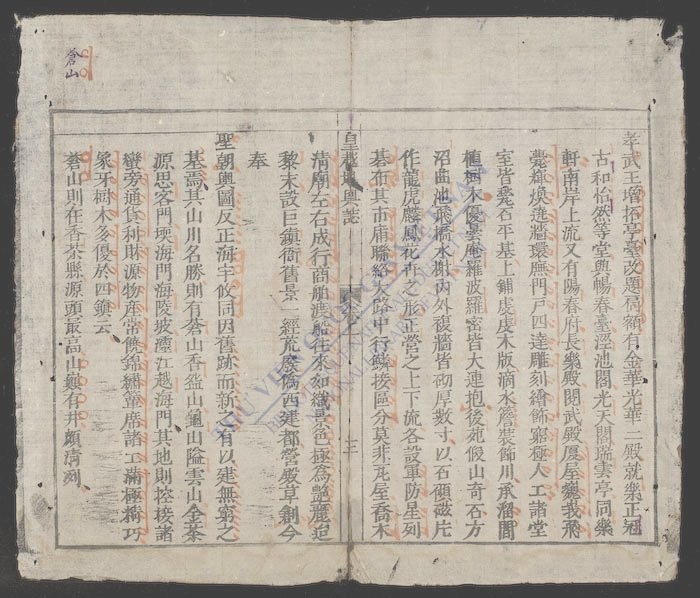 孝武王增拓亭臺改題舊額有金華光華二殿就樂正冠
古和怡然等堂與暢春臺瑤池閣光天閣瑞雲亭同樂
軒南岸上流又有陽春府長樂殿閱武殿廈屋巍峩飛
甍輝煥遶牆環廡門戸四達雕刻繪飾窮極人工諸堂
室皆甃石平基上鋪虔虔木版滴水簷裝飾川承溜間
植樹木優曇庵羅波羅密皆大連抱後苑假山奇石方
沼曲池飛橋水榭内外複牆皆砌厚數寸以石傾磁片
作龍虎麟鳳花卉之形正營之上下流各設軍防星列
碁布其市庸聯絡大路中行鱗接區分莫非瓦屋喬木
皇越地輿誌
清廟左右成行商舶渡船往來如織景邑極為艷麗迨
黎末設巨鎮衙舊景一經荒廢偽西建都營繕草創今
奉
聖朝輿圖反正海宇攸同因舊跡而新之有以建無窮之
基焉其山川名勝則有蒼山香盆山龜山隘雲山金茶
源思客門㙁海門海陵坡瀘江越海門其地則控棱諸
蠻旁通貨利財源物產常饒錦繡簟席諸工滿極搆巧
象牙樹木多優於四鎮云
蒼山則在香茶縣源頭最高山巔有井頗清冽
蒼山